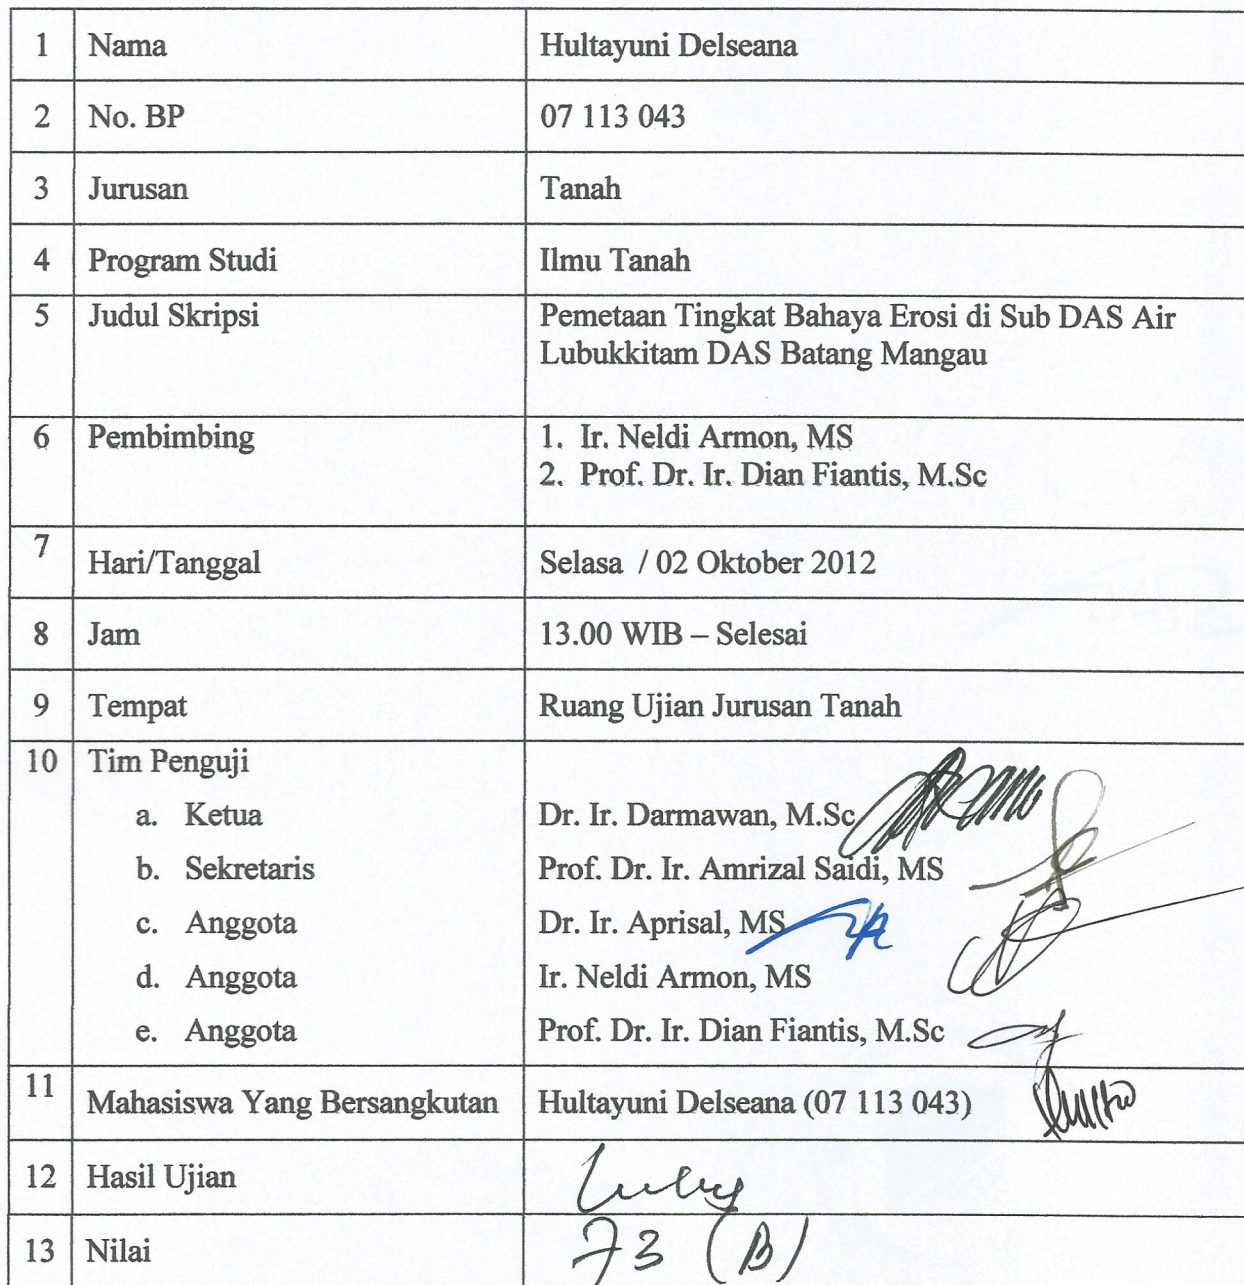 1 Nama Hultayuni Delseana
2 No. BP 07 113 043
3 Jurusan Tanah
4 Program Studi Ilmu Tanah
5 Judul Skripsi Pemetaan Tingkat Bahaya Erosi di Sub DAS Air
Lubukkitam DAS Batang Mangau
6 Pembimbing 1. Ir. Neldi Armon, MS
2. Prof. Dr. Ir. Dian Fiantis, M.Sc
7 Hari/Tanggal Selasa / 02 Oktober 2012
8 Jam 13.00 WIB – Selesai
9 Tempat Ruang Ujian Jurusan Tanah
10 Tim Penguji
a. Ketua Dr. Ir. Darmawan, M.Sc
b. Sekretaris Prof. Dr. Ir. Amrizal Saidi, MS
c. Anggota Dr. Ir. Aprisal, MS
d. Anggota Ir. Neldi Armon, MS
e. Anggota Prof. Dr. Ir. Dian Fiantis, M.Sc
11 Mahasiswa Yang Bersangkutan Hultayuni Delseana (07 113 043)
12 Hasil Ujian Lulus
13 Nilai 73 (B)